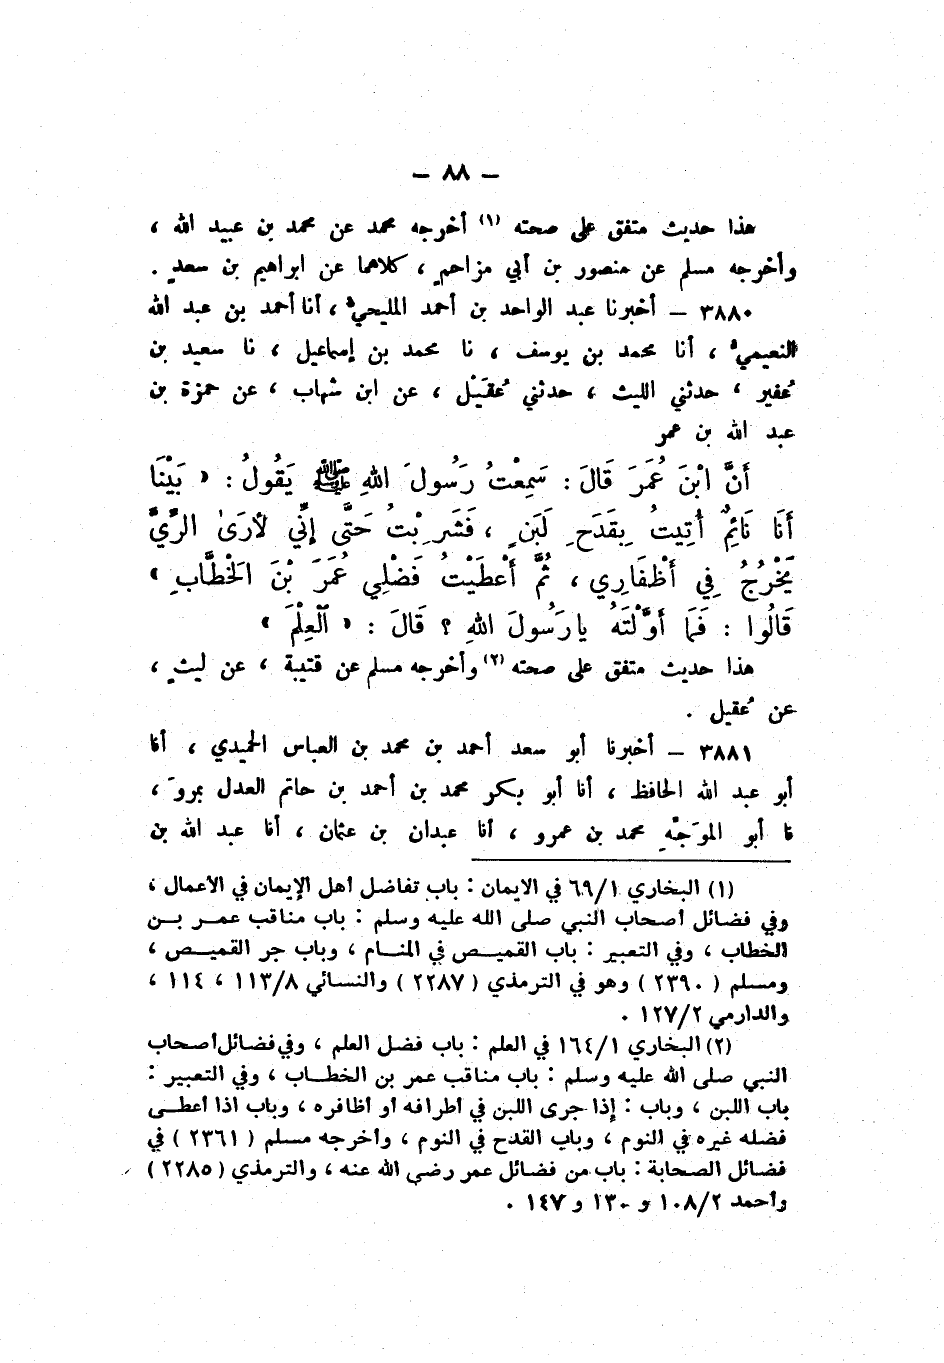 – ٨٨ –
هذا حديث متفق على صحته (١) أخرجه محمد عن محمد بن عبيد الله ،
وأخرجه مسلم عن منصور بن أبي مزاحمٍ ، كلاهما عن ابراهيم بن سعدٍ .
٣٨٨٠ – أخبرنا عبد الواحد بن أحمد المليحيُّ ، أنا أحمد بن عبد الله
النعيميُّ ، أنا محمد بن يوسف ، نا محمد بن إسماعيل ، نا سعيد بن
عُفير ، حدثني الليث ، حدثني عُقَيْل ، عن ابن شهاب ، عن حمزة بن
عبد الله بن عمر
أَنَّ ابْنَ عُمَرَ قَالَ : سَمِعْتُ رَسُولَ اللهِ ﷺ يَقُولُ : « بَيْنَا
أَنَا نَائِمٌ أُتِيتُ بِقَدَحِ لَبَنٍ ، فَشَرِبْتُ حَتَّى إِنِّي لأَرَىٰ الرِّيَّ
يَخْرُجُ فِي أَظْفَارِي ، ثُمَّ أَعْطَيْتُ فَضْلِي عُمَرَ بْنَ الخَطَّابِ »
قَالُوا : فَمَا أَوَّلْتَهُ يا رَسُولَ اللهِ ؟ قَالَ : « ٱلْعِلْمَ »
هذا حديث متفق على صحته (٢) وأخرجه مسلم عن قتيبة ، عن ليثٍ ،
عن عُقيل .
٣٨٨١ – أخبرنا أبو سعد أحمد بن محمد بن العباس الحميدي ، أنا
أبو عبد الله الحافظ ، أنا أبو بكر محمد بن أحمد بن حاتم العدل بمروَ ،
نا أبو الموَجِّه محمد بن عمرو ، أنا عبدان بن عثمان ، أنا عبد الله بن
(١) البخاري ٦٩/١ في الايمان : باب تفاضل أهل الإيمان في الأعمال ،
وفي فضائل أصحاب النبي صلى الله عليه وسلم : باب مناقب عمر بن
الخطاب ، وفي التعبير : باب القميص في المنام ، وباب جر القميص ،
ومسلم ( ٢٣٩٠ ) وهو في الترمذي ( ٢٢٨٧ ) والنسائي ١١٣/٨ ، ١١٤ ،
والدارمي ١٢٧/٢ .
(٢) البخاري ١٦٤/١ في العلم : باب فضل العلم ، وفي فضائل أصحاب
النبي صلى الله عليه وسلم : باب مناقب عمر بن الخطاب ، وفي التعبير :
باب اللبن ، وباب : إذا جرى اللبن في أطرافه أو أظافره ، وباب اذا أعطى
فضله غيره في النوم ، وباب القدح في النوم ، وأخرجه مسلم ( ٢٣٦١ ) في
فضائل الصحابة : باب من فضائل عمر رضي الله عنه ، والترمذي ( ٢٢٨٥ )
وأحمد ١٠٨/٢ و ١٣٠ و ١٤٧ .